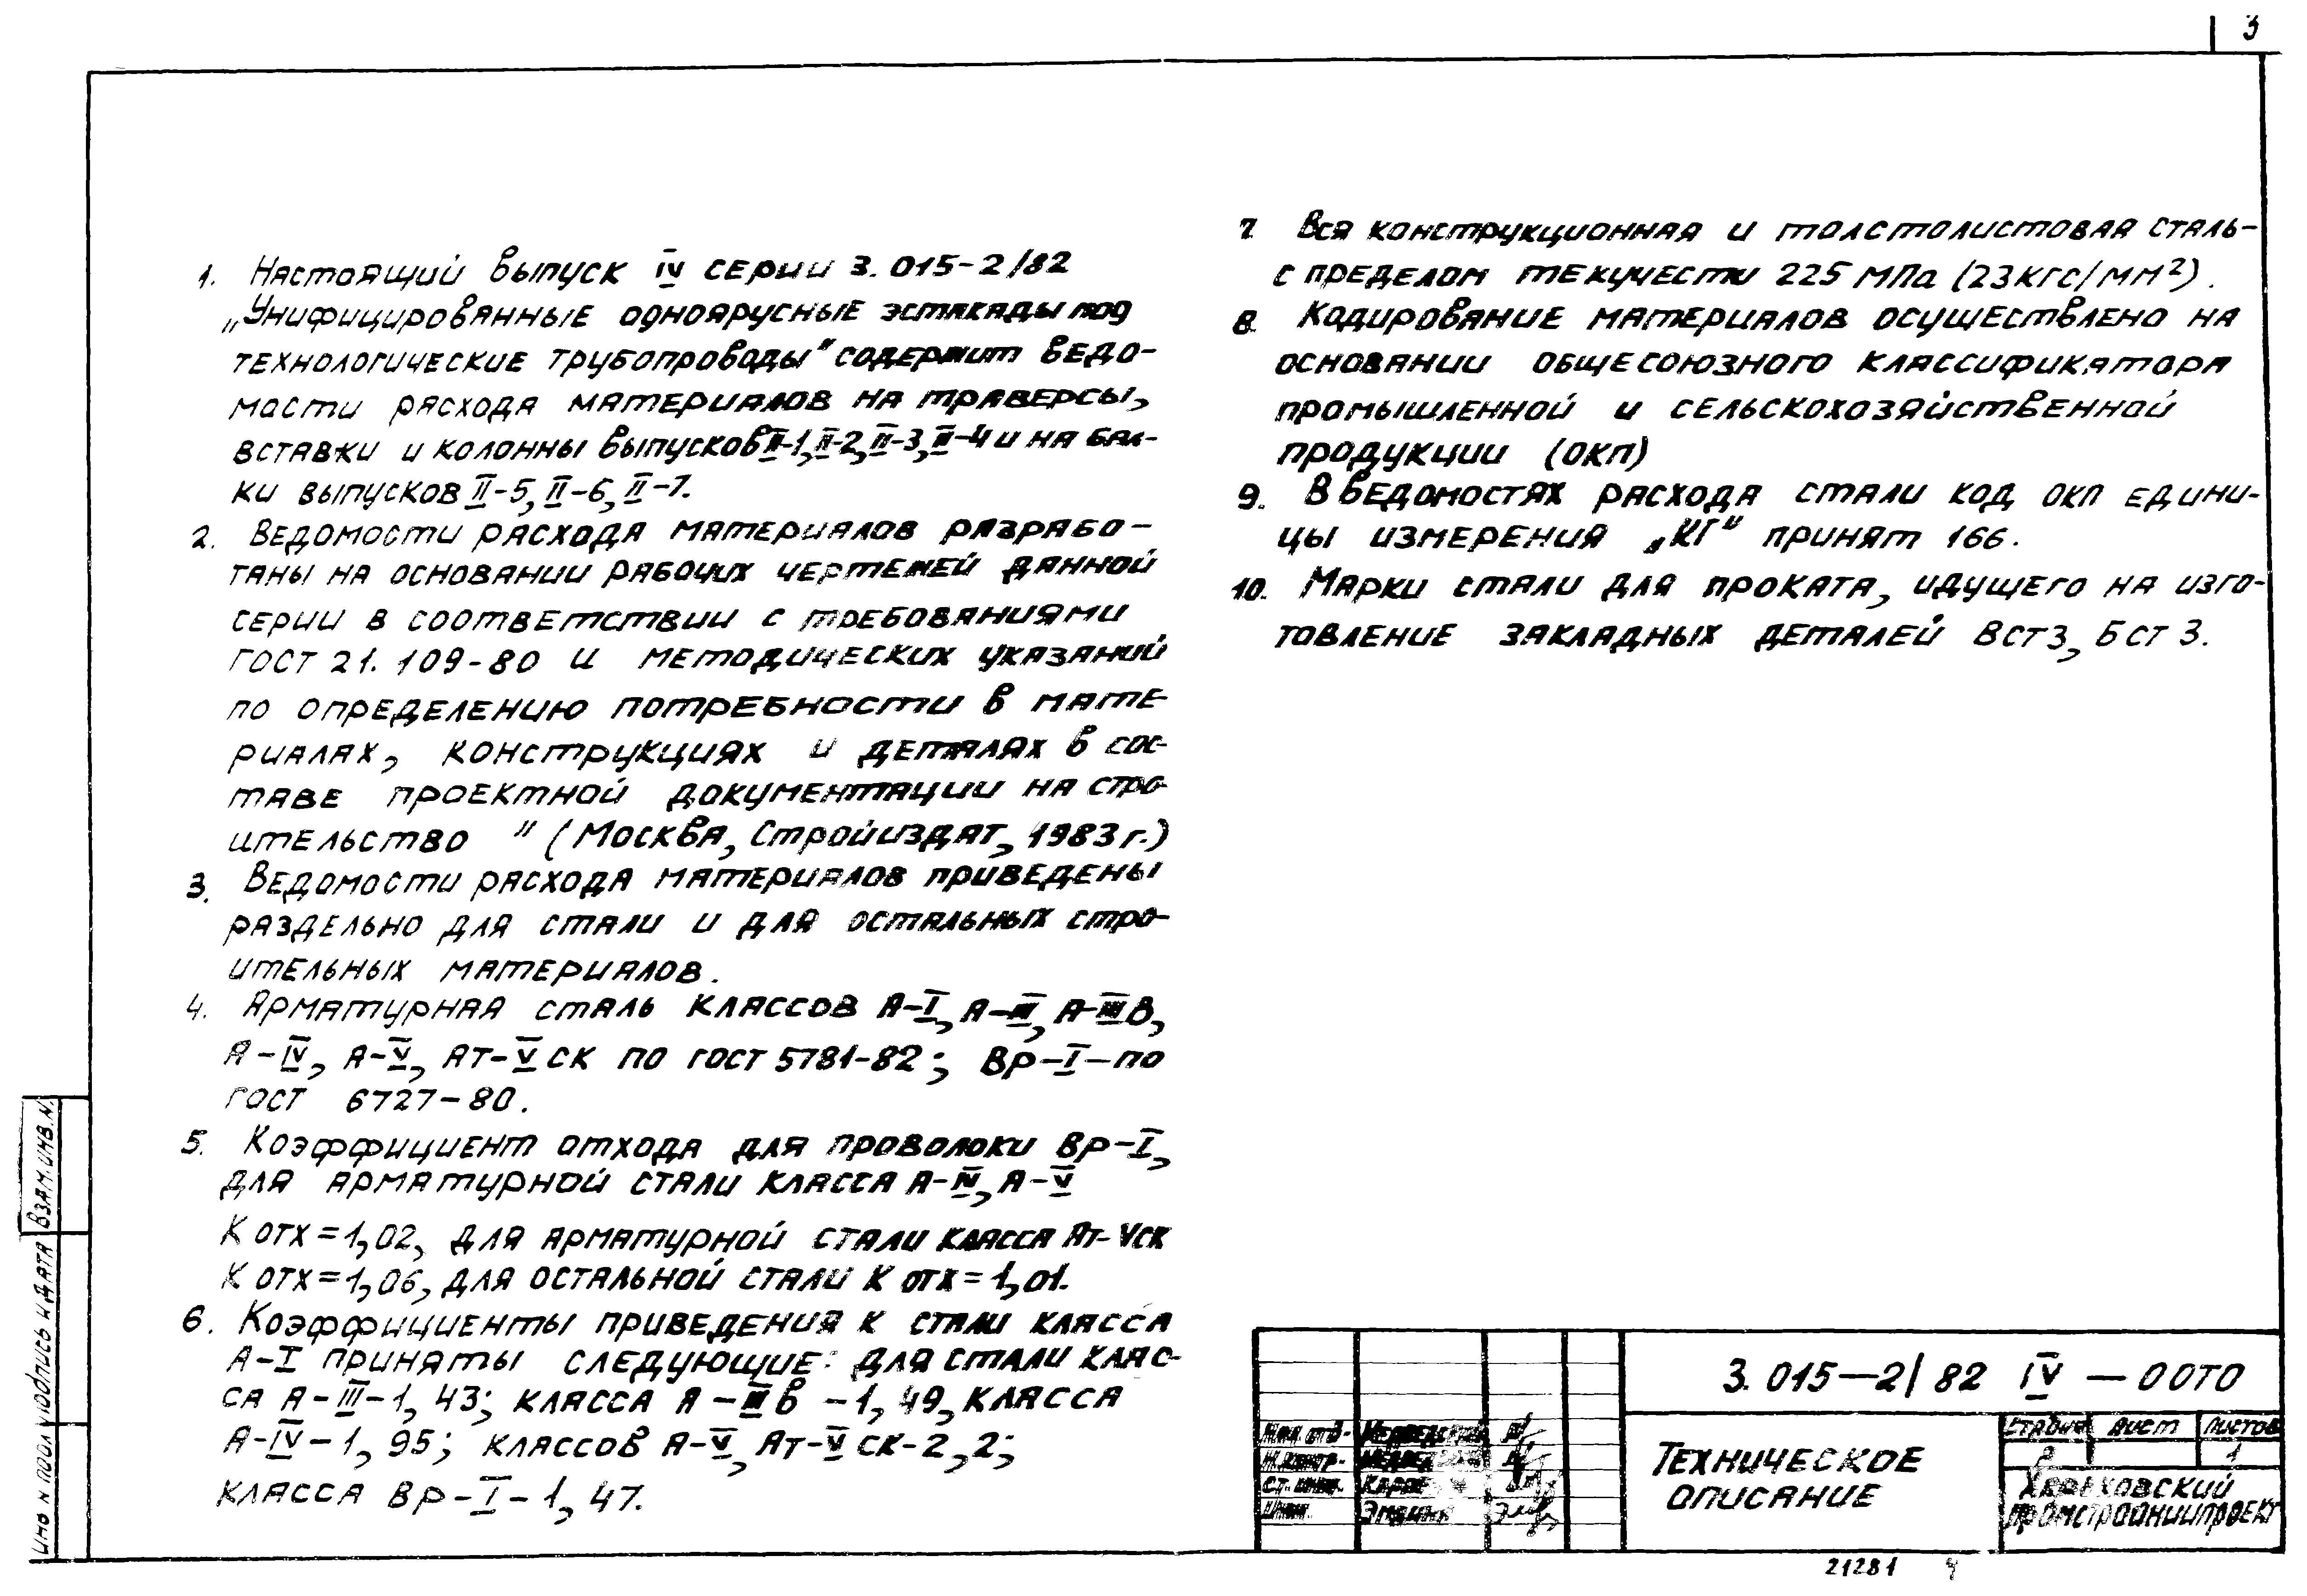 3
1. Настоящий выпуск IV серии 3.015-2/82
„Унифицированные одноярусные эстакады под
технологические трубопроводы" содержит ведо-
мости расхода материалов на траверсы,
вставки и колонны выпусков II-1, II-2, II-3, II-4 и на бал-
ки выпусков II-5, II-6, II-7.
2. Ведомости расхода материалов разрабо-
таны на основании рабочих чертежей данной
серии в соответствии с требованиями
ГОСТ 21.109-80 и методических указаний
по определению потребности в мате-
риалах, конструкциях и деталях в сос-
таве проектной документации на стро-
ительство " (Москва, Стройиздат, 1983 г.)
3. Ведомости расхода материалов приведены
раздельно для стали и для остальных стро-
ительных материалов.
4. Арматурная сталь классов А-I, А-III, А-IIIВ,
А-IV, А-V, Ат-V СК по ГОСТ 5781-82; ВР-I-по
ГОСТ 6727-80.
5. Коэффициент отхода для проволоки ВР-I,
для арматурной стали класса А-IV, А-V
К отх=1,02, для арматурной стали класса Ат-VСК
К отх=1,06, для остальной стали К отх=1,01.
6. Коэффициенты приведения к стали класса
А-I приняты следующие: для стали клас-
са А-III-1,43; класса А-IIIв-1,49, класса
А-IV-1,95; классов А-V, Ат-V СК-2,2;
класса ВР-I-1,47.
7. Вся конструкционная и толстолистовая сталь-
с пределом текучести 225 МПа (23кгс/мм²).
8. Кодирование материалов осуществлено на
основании общесоюзного классификатора
промышленной и сельскохозяйственной
продукции (ОКП)
9. В ведомостях расхода стали код ОКП едини-
цы измерения „КГ" принят 166.
10. Марки стали для проката, идущего на изго-
товление закладных деталей ВСт3, БСт 3.
Взам.инв.N
Подпись и дата
Инв N подл
3.015-2/82 IV -00ТО
Нач. отд.
Н.контр.
Ст. инж.
Инж.
Техническое
описание
Стадия Лист Листов
Р 1
Харьковский
Промстройниипроект
21281 4